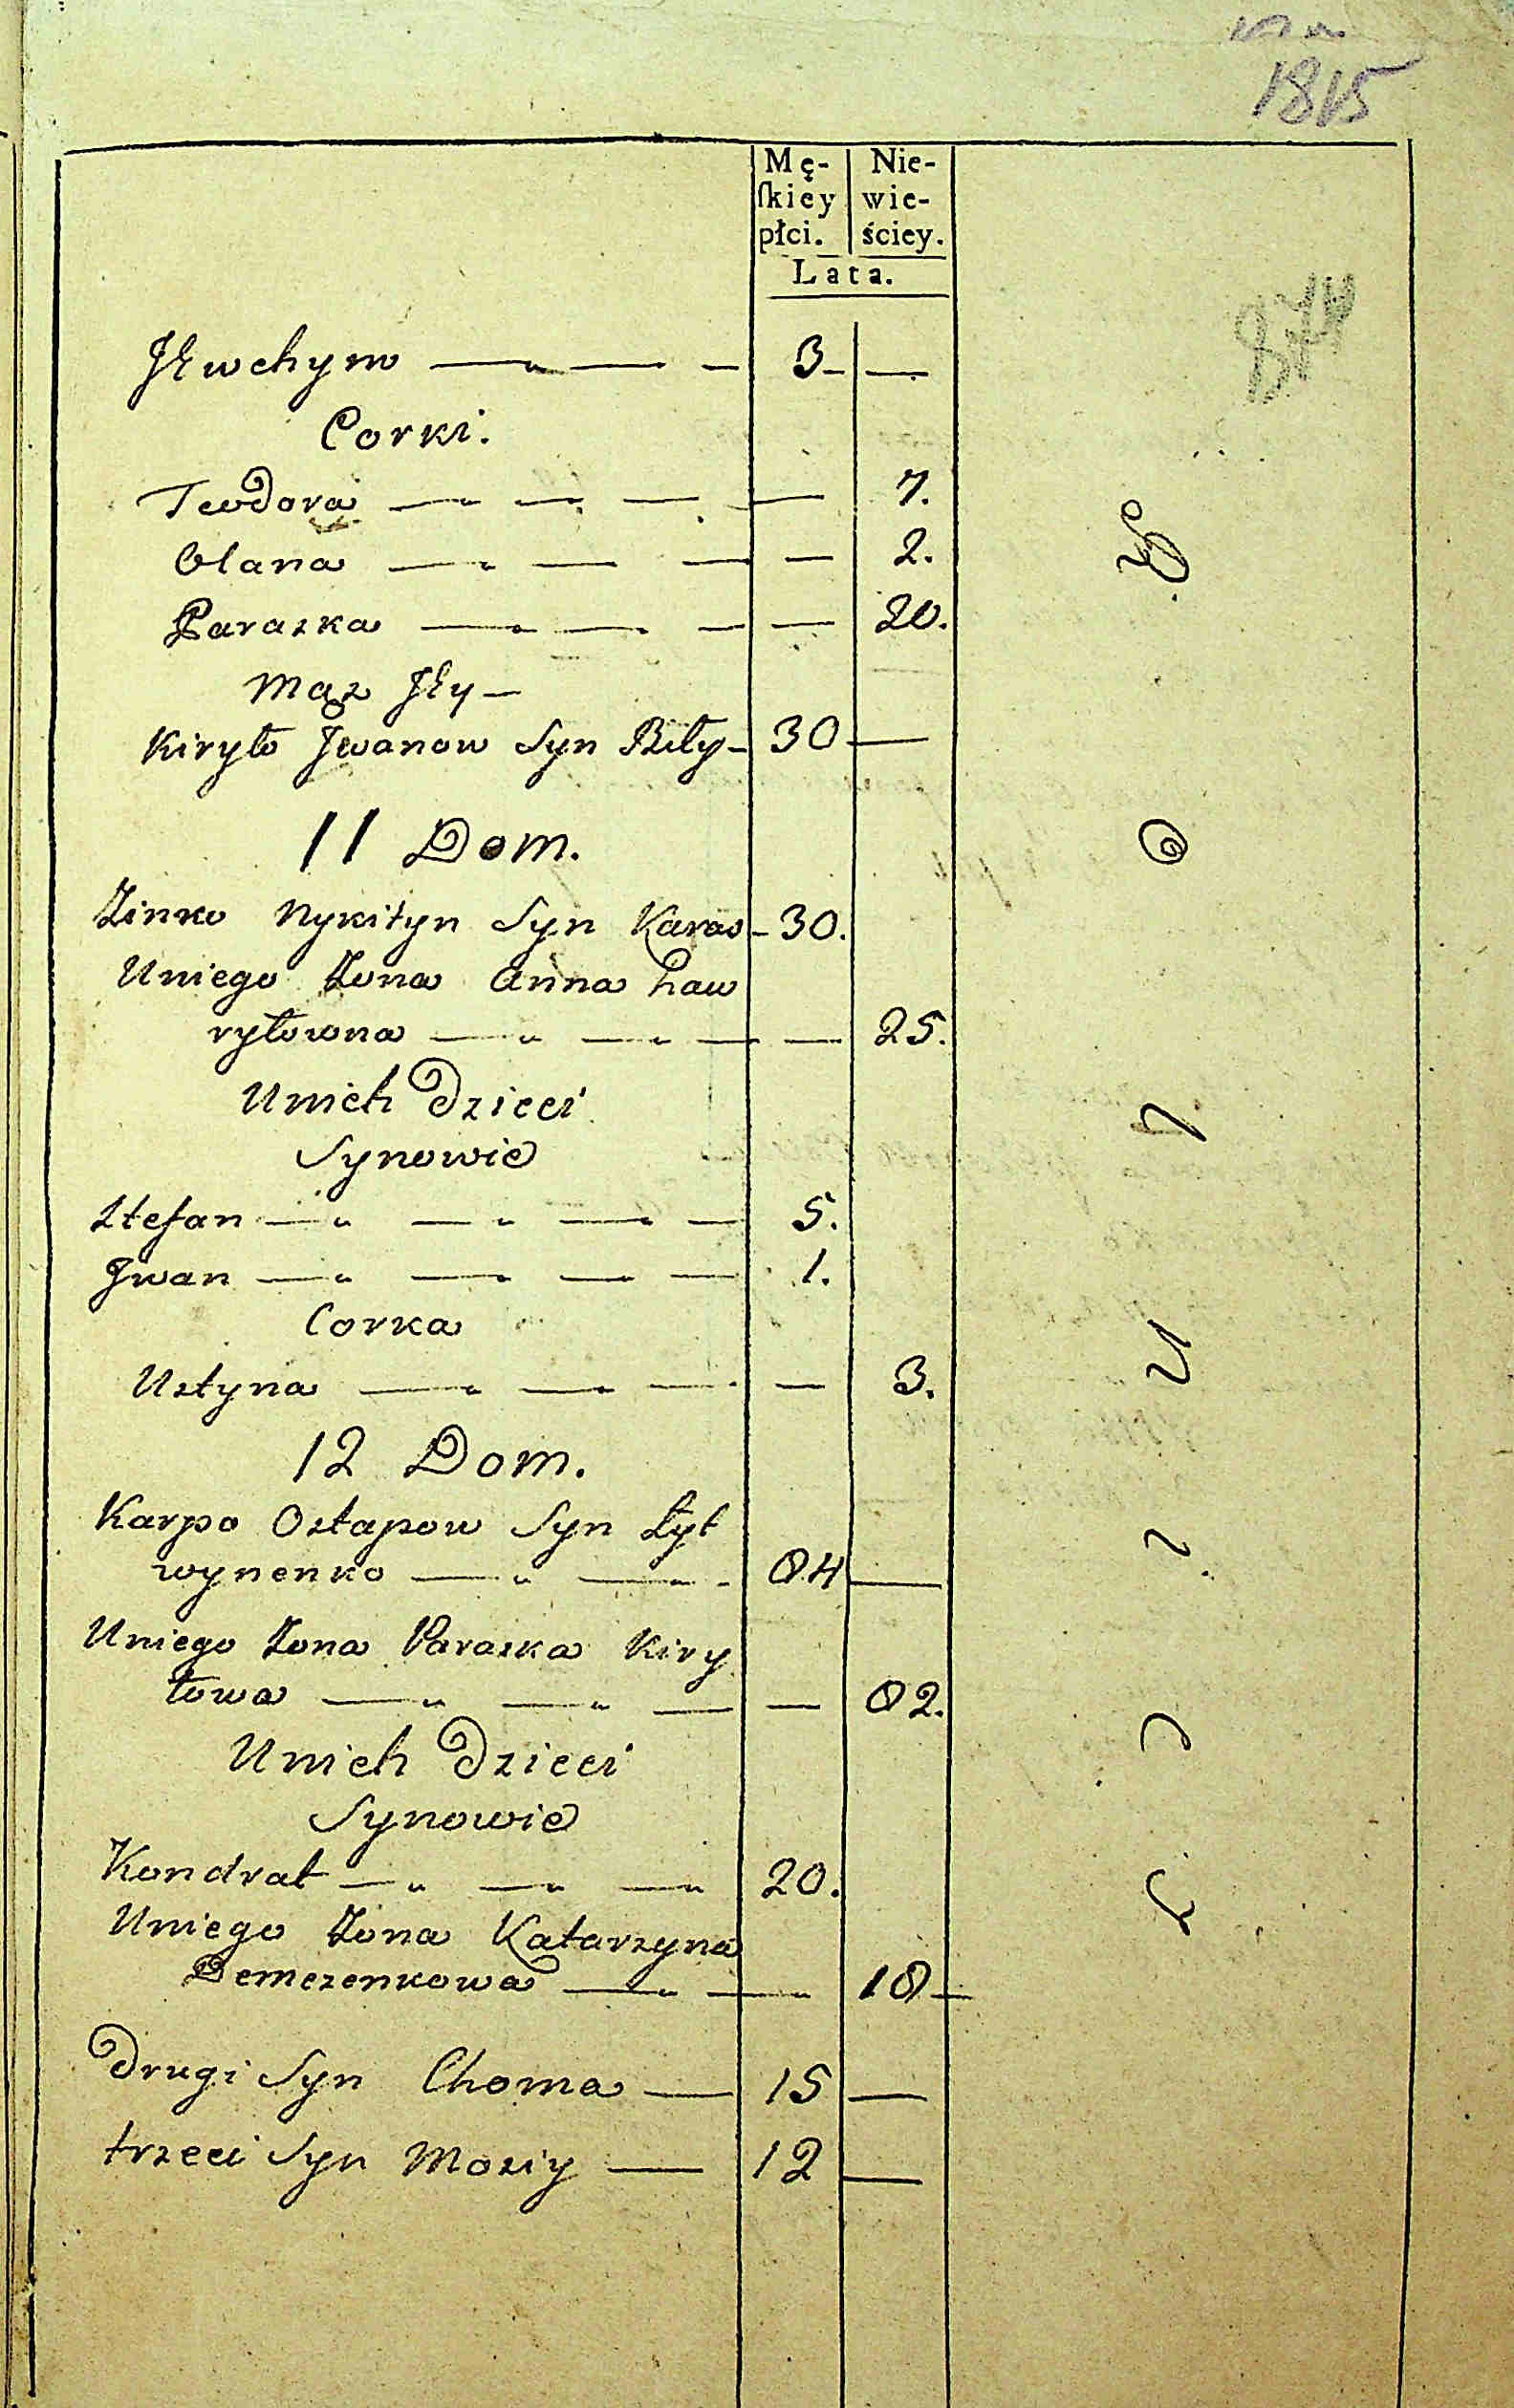 1815
874
Mę- Nie-
skiey wie-
płci. ściey.
Lata.
Jewchym — — — 3 —
Corki.
Teodora — — — — 7.
Olana — — — — 2.
Paraska — — — — 20.
Mąz Jey —
Kiryło Jwanow Syn Biły — 30 —
11 Dom.
Zinko Nykityn Syn Karas — 30.
Uniego Zona Anna haw
ryłowna — — — — 25.
Unich Dzieci
Synowie
Stefan — — — — 5.
Jwan — — — — 1.
Corka
Ustyna — — — — 3.
12 Dom.
Karpo Ostapow Syn Łyt
wynenko — — - 84 —
Uniego Zona Paraska Kiry
łowa — — — — 82.
Unich Dzieci
Synowie
Kondrat — — — 20.
Uniego Zona Katarzyna
Demezenkowa — — 18 —
Drugi Syn Choma — 15 —
trzeci Syn Mosiy — 12 —